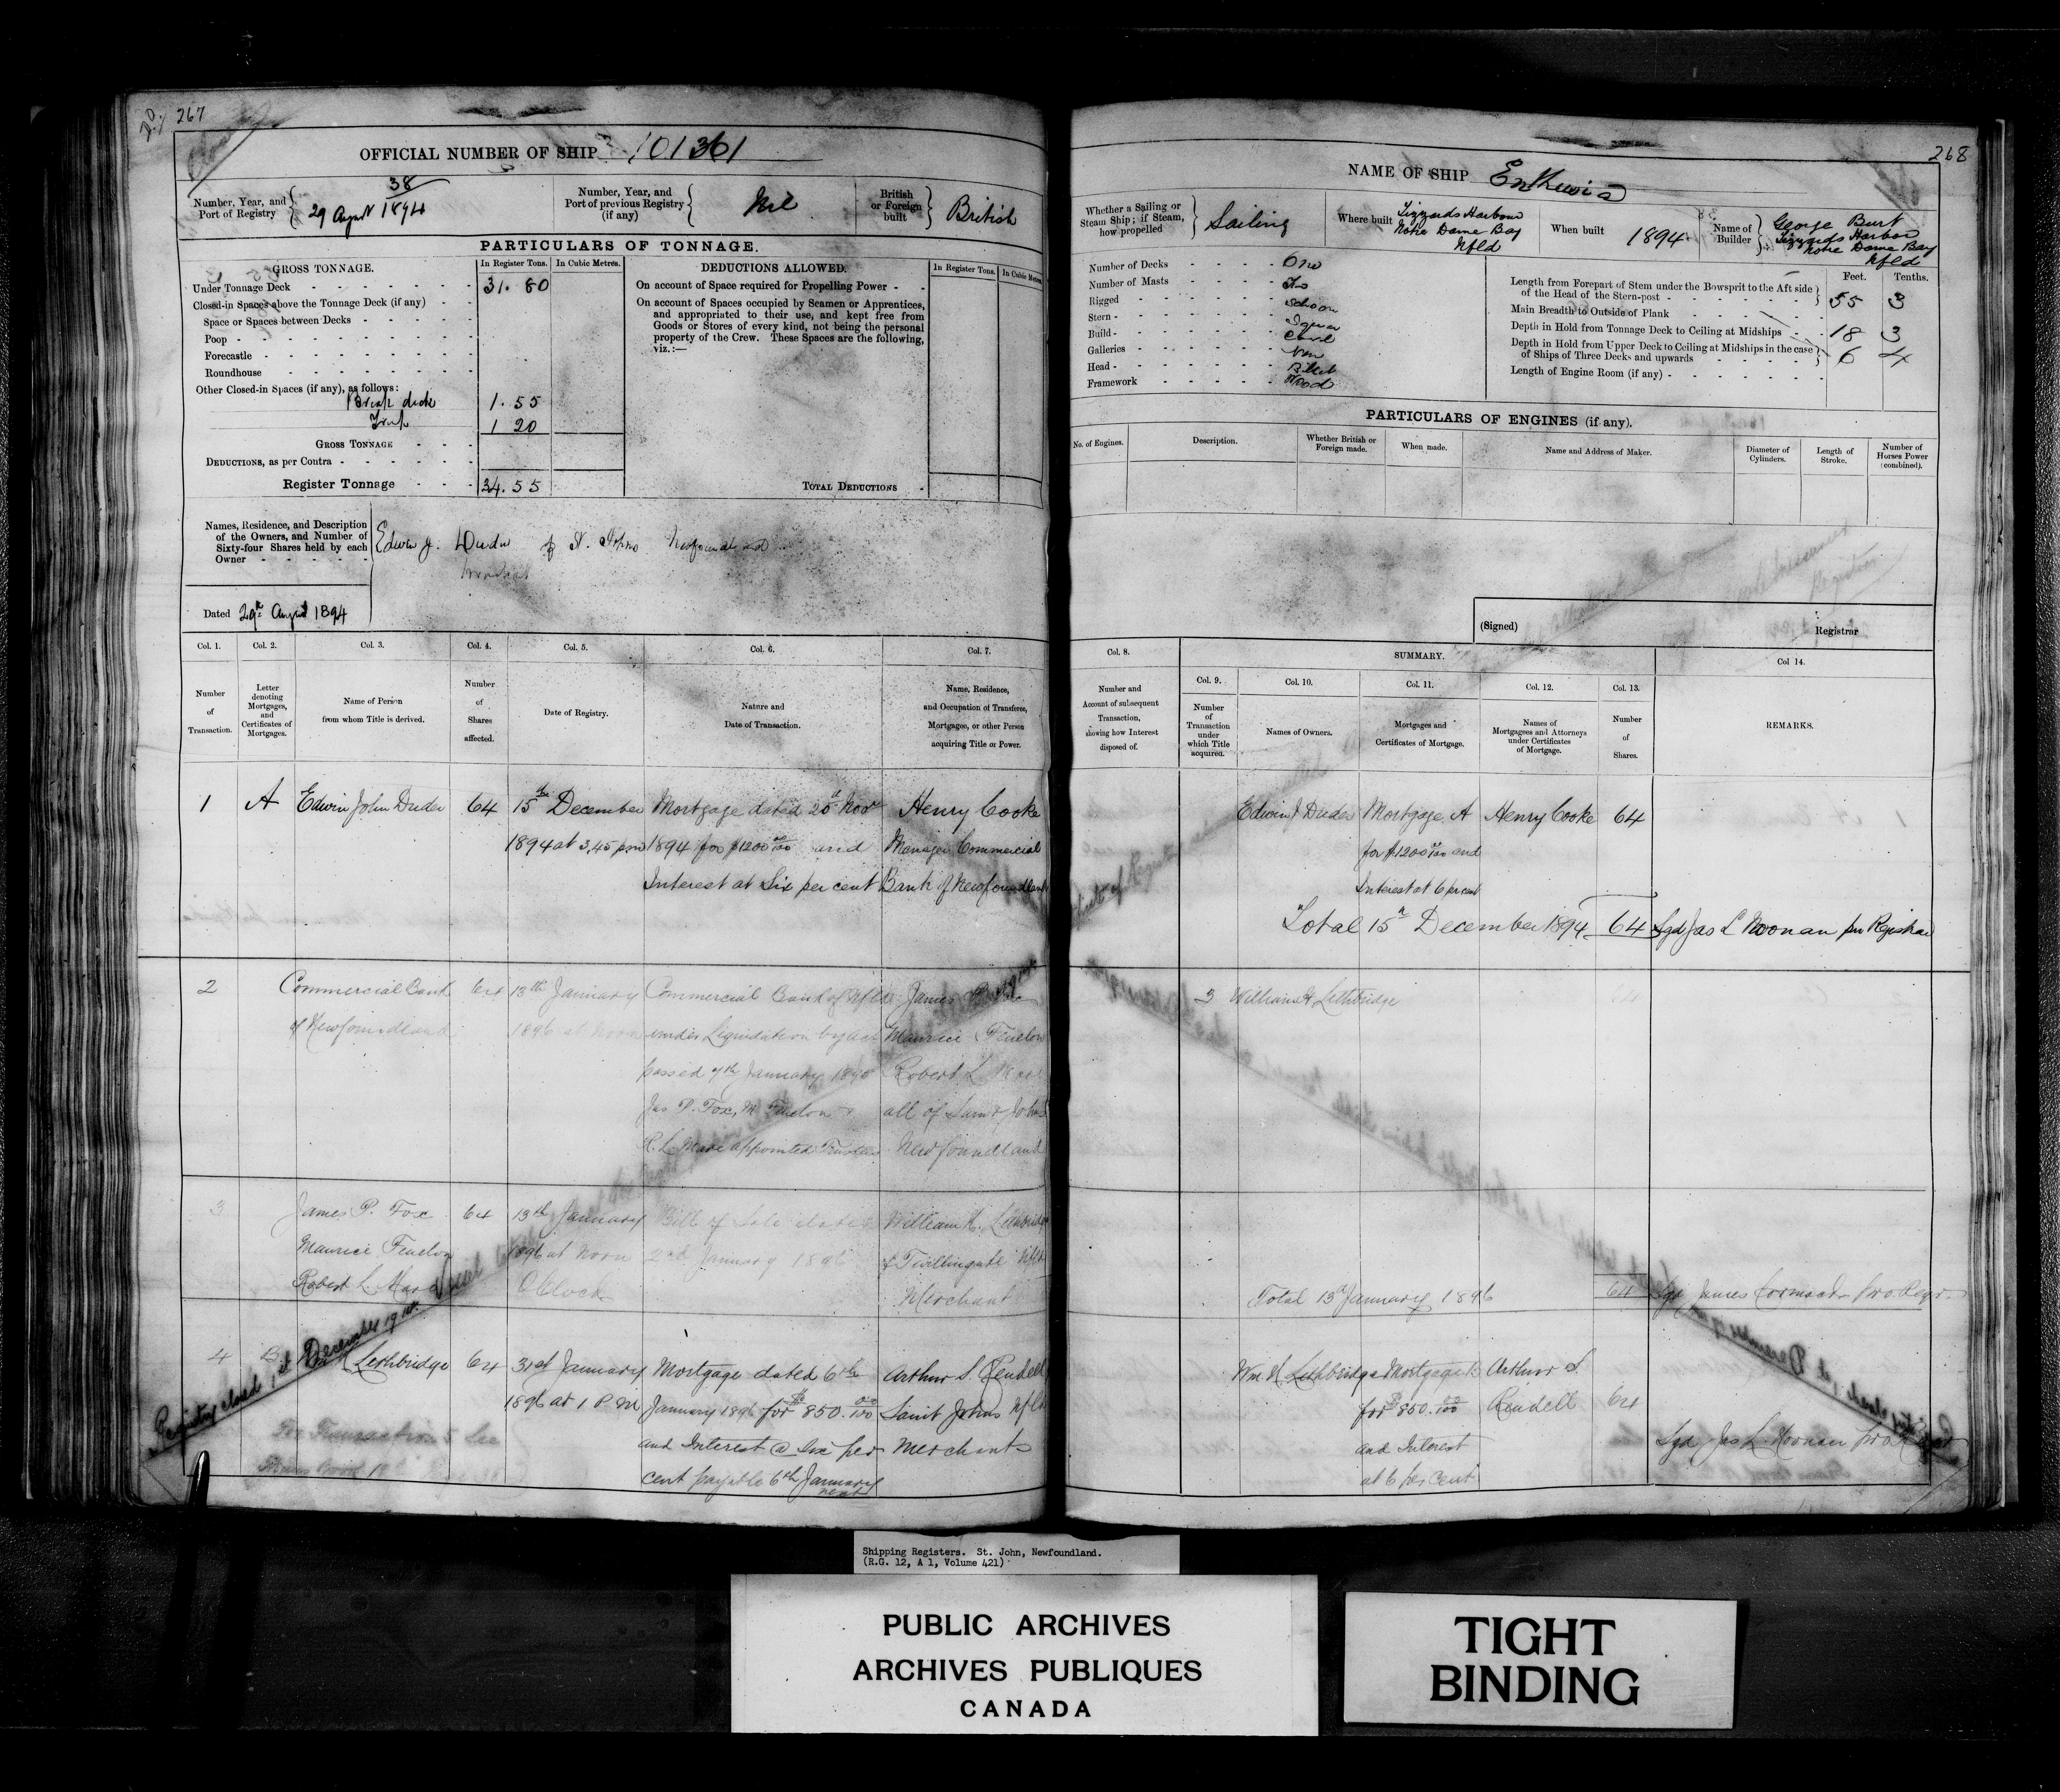 267
OFFICIAL NUMBER OF SHIP 101361
Number, Year, and Port of Registry
38
29 August 1894
Number, Year, and Port of previous Registry (if any)
Nil
British or Foreign built
British
PARTICULARS OF TONNAGE.
GROSS TONNAGE.
In Register Tons.
In Cubic Metres.
DEDUCTIONS ALLOWED.
In Register Tons.
In Cubic Metres
Under Tonnage Deck 31.80
Closed-in Spaces above the Tonnage Deck (if any)
Space or Spaces between Decks
Poop
Forecastle
Roundhouse
Other Closed-in Spaces (if any), as follows:
Break deck 1.55
Trunk 1 20
GROSS TONNAGE
DEDUCTIONS, as per Contra
Register Tonnage 34.55
On account of Space required for Propelling Power
On account of Spaces occupied by Seamen or Apprentices,
and appropriated to their use, and kept free from
Goods or Stores of every kind, not being the personal
property of the Crew. These Spaces are the following,
viz.:—
TOTAL DEDUCTIONS
Names, Residence, and Description
of the Owners, and Number of
Sixty-four Shares held by each
Owner
Edwin J. Duder of St. Johns Newfoundland
Dated 29th August 1894
Col. 1.
Number of Transaction.
Col. 2.
Letter denoting Mortgages, and Certificates of Mortgages.
Col. 3.
Name of Person from whom Title is derived.
Col. 4.
Number of Shares affected.
Col. 5.
Date of Registry.
Col. 6.
Nature and Date of Transaction.
Col. 7.
Name, Residence, and Occupation of Transferee, Mortgagee, or other Person acquiring Title or Power.
1 A Edwin John Duder 64
15th December
1894 at 3,45 pm
Mortgage dated 20th Novr
1894 for $1200 00/100 and
Interest at Six per cent
Henry Cooke
Manager Commercial
Bank of Newfoundland
2 Commercial Bank
of Newfoundland
64
13th January
1896 at Noon
Commercial Bank of Nfld
under Liquidation by act
passed 7th January 1895
Jas P. Fox, M. Fenelon &
R. L. Mare appointed Trustees
James P. Fox
Maurice Fenelon
Robert L. Mare
all of Saint Johns
Newfoundland
3 James P. Fox
Maurice Fenelon
Robert L. Mare
64
13th January
1896 at Noon
O'Clock
Bill of Sale dated
2nd January 1896
William H. Lethbridge
of Twillingate Nfld
Merchant
4 B Lethbridge 64
31st January
1896 at 1 P.M
Mortgage dated 6th
January 1896 for $850. 00/100
and Interest @ Six per
cent payable 6th January
next
Arthur S. Rendell
Saint Johns Nfld
Merchant
For Transaction 5 See
Registry closed 1st December 19
268
NAME OF SHIP
Whether a Sailing or Steam Ship; if Steam, how propelled
Sailing
Where built
Tizzards Harbour
Notre Dame Bay
Nfld
When built
1894
Name of Builder
George Burt
Tizzards Harbor
Notre Dame Bay
Nfld
Number of Decks One
Number of Masts Two
Rigged Schooner
Stern Square
Build Carvel
Galleries None
Head Billet
Framework Wood
Feet. Tenths.
Length from Forepart of Stem under the Bowsprit to the Aft side
of the Head of the Stern-post 55 3
Main Breadth to Outside of Plank 18 3
Depth in Hold from Tonnage Deck to Ceiling at Midships 6 4
Depth in Hold from Upper Deck to Ceiling at Midships in the case
of Ships of Three Decks and upwards
Length of Engine Room (if any)
PARTICULARS OF ENGINES (if any).
No. of Engines.
Description.
Whether British or Foreign made.
When made.
Name and Address of Maker.
Diameter of Cylinders.
Length of Stroke.
Number of Horses Power (combined).
(Signed)
Registrar
Col. 8.
Number and Account of subsequent Transaction, showing how Interest disposed of.
SUMMARY.
Col. 9.
Number of Transaction under which Title acquired.
Col. 10.
Names of Owners.
Col. 11.
Mortgages and Certificates of Mortgage.
Col. 12.
Names of Mortgagees and Attorneys under Certificates of Mortgage.
Col. 13.
Number of Shares.
Col 14.
REMARKS.
Edwin J Duder
Mortgage A
for $1200 00/100 and
Interest at 6 per cent
Henry Cooke 64
Total 15th December 1894 64 Sgd Jas L Noonan pro Registrar
3 William H Lethbridge 64
Total 13th January 1896 64 Sgd James Cormack pro Regr.
Wm H Lethbridge
Mortgage B
for $850. 00/100
and Interest
at 6 per cent
Arthur S.
Rendell
64
Sgd Jas L. Noonan pro
Shipping Registers. St. John, Newfoundland.
(R.G. 12, A 1, Volume 421)
PUBLIC ARCHIVES
ARCHIVES PUBLIQUES
CANADA
TIGHT
BINDING